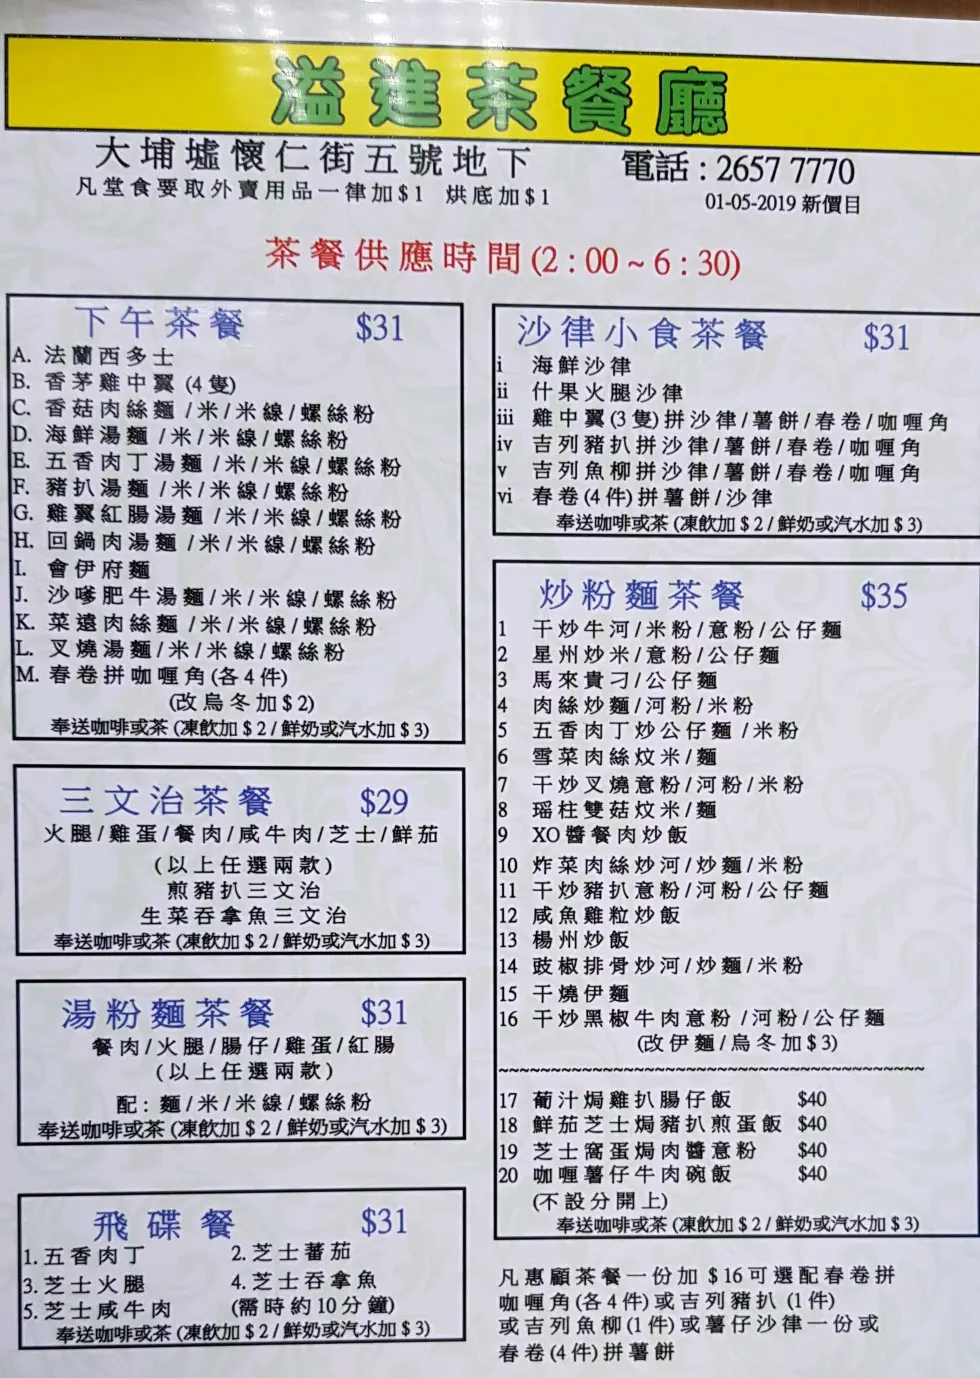 溢進茶餐廳
大埔墟懷仁街五號地下
電話 : 2657 7770
凡堂食要取外賣用品一律加$1 烘底加$1
01-05-2019 新價目
茶餐供應時間(2 : 00 ~ 6 : 30)
下午茶餐 $31
A. 法蘭西多士
B. 香茅雞中翼 (4 隻)
C. 香菇肉絲麵 / 米 / 米線 / 螺絲粉
D. 海鮮湯麵 / 米 / 米線 / 螺絲粉
E. 五香肉丁湯麵 / 米 / 米線 / 螺絲粉
F. 豬扒湯麵 / 米 / 米線 / 螺絲粉
G. 雞翼紅腸湯麵 / 米 / 米線 / 螺絲粉
H. 回鍋肉湯麵 / 米 / 米線 / 螺絲粉
I. 會伊府麵
J. 沙嗲肥牛湯麵 / 米 / 米線 / 螺絲粉
K. 菜遠肉絲麵 / 米 / 米線 / 螺絲粉
L. 叉燒湯麵 / 米 / 米線 / 螺絲粉
M. 春卷拼咖喱角 (各 4 件)
(改烏冬加 $ 2)
奉送咖啡或茶 (凍飲加 $ 2 / 鮮奶或汽水加 $ 3)
三文治茶餐 $29
火腿 / 雞蛋 / 餐肉 / 咸牛肉 / 芝士 / 鮮茄
( 以上任選兩款 )
煎豬扒三文治
生菜吞拿魚三文治
奉送咖啡或茶 (凍飲加 $ 2 / 鮮奶或汽水加 $ 3)
湯粉麵茶餐 $31
餐肉 / 火腿 / 腸仔 / 雞蛋 / 紅腸
( 以上任選兩款 )
配 : 麵 / 米 / 米線 / 螺絲粉
奉送咖啡或茶 (凍飲加 $ 2 / 鮮奶或汽水加 $ 3)
飛碟餐 $31
1. 五香肉丁 2. 芝士蕃茄
3. 芝士火腿 4. 芝士吞拿魚
5. 芝士咸牛肉 (需時約 10 分鐘)
奉送咖啡或茶 (凍飲加 $ 2 / 鮮奶或汽水加 $ 3)
沙律小食茶餐 $31
i 海鮮沙律
ii 什果火腿沙律
iii 雞中翼 (3 隻) 拼沙律 / 薯餅 / 春卷 / 咖喱角
iv 吉列豬扒拼沙律 / 薯餅 / 春卷 / 咖喱角
v 吉列魚柳拼沙律 / 薯餅 / 春卷 / 咖喱角
vi 春卷 (4 件) 拼薯餅 / 沙律
奉送咖啡或茶 (凍飲加 $ 2 / 鮮奶或汽水加 $ 3)
炒粉麵茶餐 $35
1 干炒牛河 / 米粉 / 意粉 / 公仔麵
2 星州炒米 / 意粉 / 公仔麵
3 馬來貴刁 / 公仔麵
4 肉絲炒麵 / 河粉 / 米粉
5 五香肉丁炒公仔麵 / 米粉
6 雪菜肉絲炆米 / 麵
7 干炒叉燒意粉 / 河粉 / 米粉
8 瑤柱雙菇炆米 / 麵
9 XO 醬餐肉炒飯
10 炸菜肉絲炒河 / 炒麵 / 米粉
11 干炒豬扒意粉 / 河粉 / 公仔麵
12 咸魚雞粒炒飯
13 楊州炒飯
14 豉椒排骨炒河 / 炒麵 / 米粉
15 干燒伊麵
16 干炒黑椒牛肉意粉 / 河粉 / 公仔麵
(改伊麵 / 烏冬加 $ 3)
~~~~~~~~~~~~~~~~~~~~~~~~~~~~~~~~~~~~~~~~
17 葡汁焗雞扒腸仔飯 $40
18 鮮茄芝士焗豬扒煎蛋飯 $40
19 芝士窩蛋焗肉醬意粉 $40
20 咖喱薯仔牛肉碗飯 $40
(不設分開上)
奉送咖啡或茶 (凍飲加 $ 2 / 鮮奶或汽水加 $ 3)
凡惠顧茶餐一份加 $ 16 可選配春卷拼
咖喱角 (各 4 件) 或吉列豬扒 (1 件)
或吉列魚柳 (1 件) 或薯仔沙律一份或
春卷 (4 件) 拼薯餅